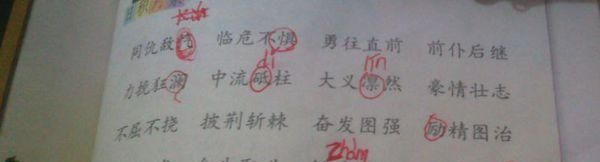 同仇敌忾 临危不惧 勇往直前 前仆后继
dǐ lǐn
力挽狂澜 中流砥柱 大义凛然 豪情壮志
不屈不挠 披荆斩棘 奋发图强 励精图治